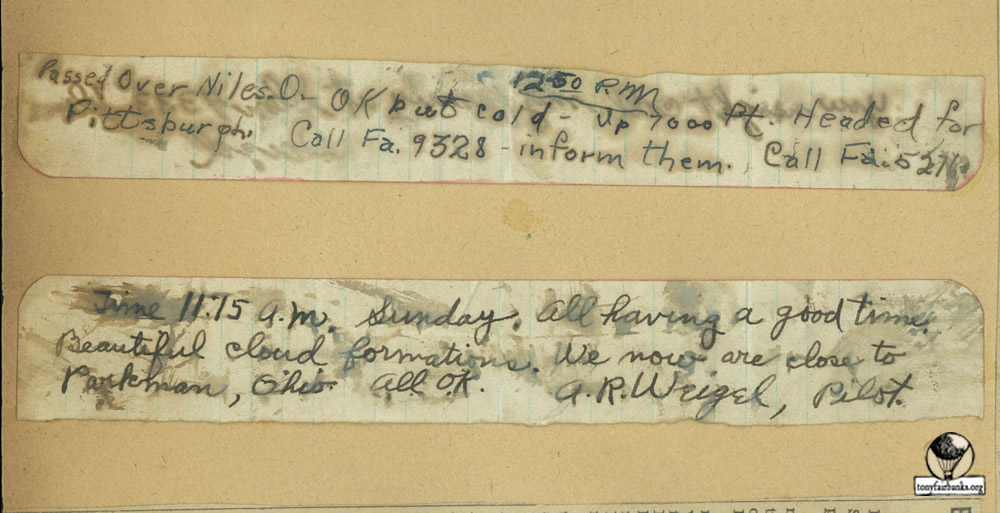 12:50 P.M.
Passed Over Niles.O. OK but cold - Up 7000 Ft. Headed for
Pittsburgh. Call Fa. 9328 - inform them. Call Fa.
Time 11:15 a.m. Sunday. All having a good time.
Beautiful cloud formations. We now are close to
Parkman, Ohio. All O.K. A.R. Weigel, Pilot.
tonyfairbanks.org